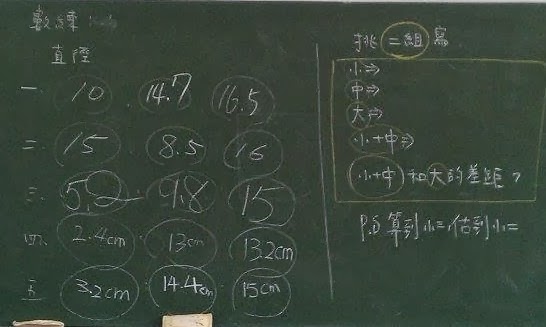 數練
直徑
一 10 14.7 16.5
二 15 8.5 16
三 5.2 9.8 15
四 2.4cm 13cm 13.2cm
五 3.2cm 14.4cm 15cm
挑二組寫
小⇒
中⇒
大⇒
小+中⇒
(小+中)和大的差距?
P.S 算到小三估到小二